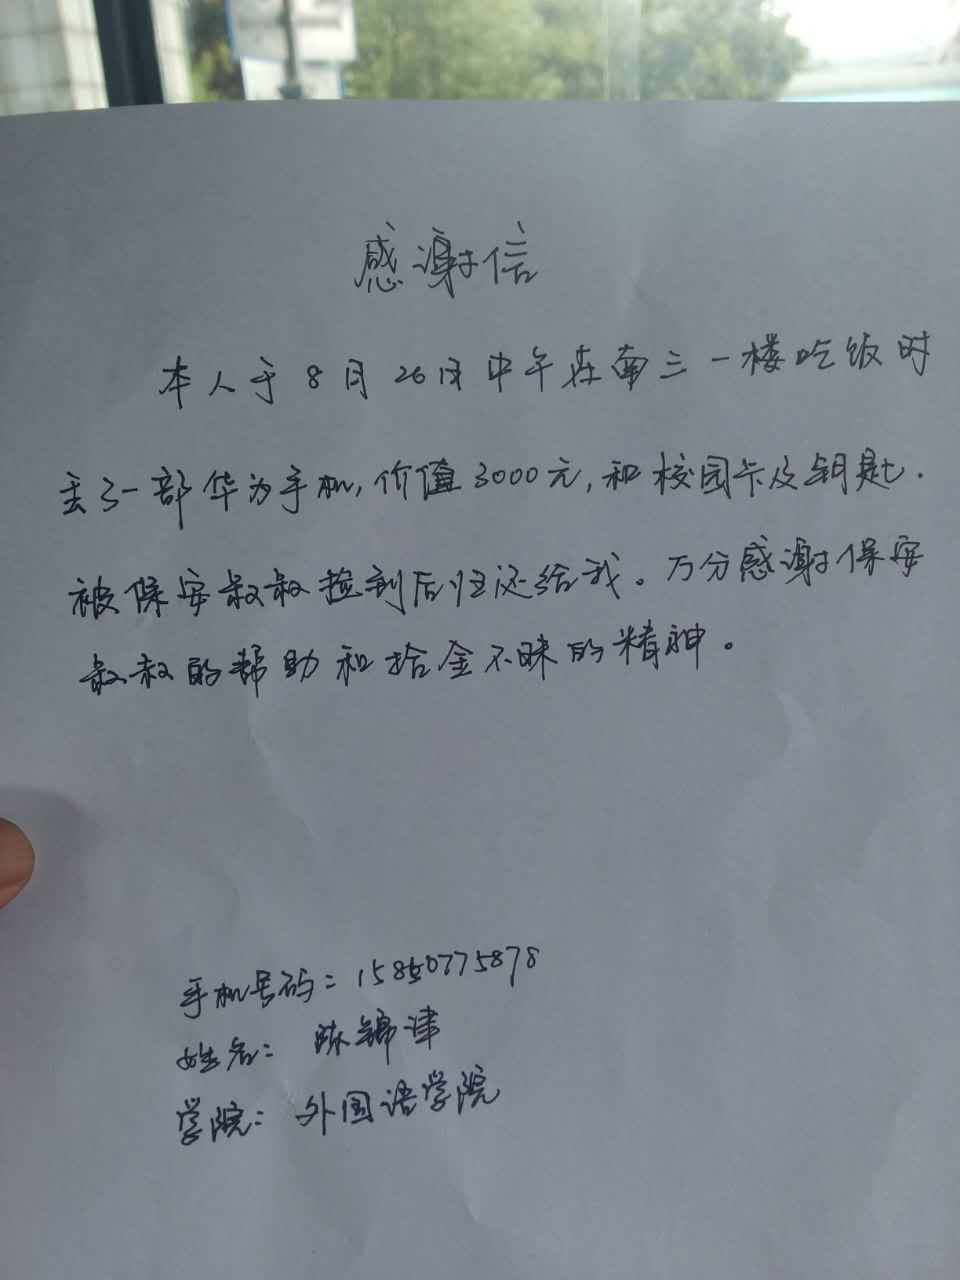 感谢信
本人于8月26日中午在南三一楼吃饭时
丢了一部华为手机,价值3000元,和校园卡及钥匙.
被保安叔叔捡到后归还给我。万分感谢保安
叔叔的帮助和拾金不昧的精神。
手机号码:15850775878
姓名:陈锦津
学院:外国语学院